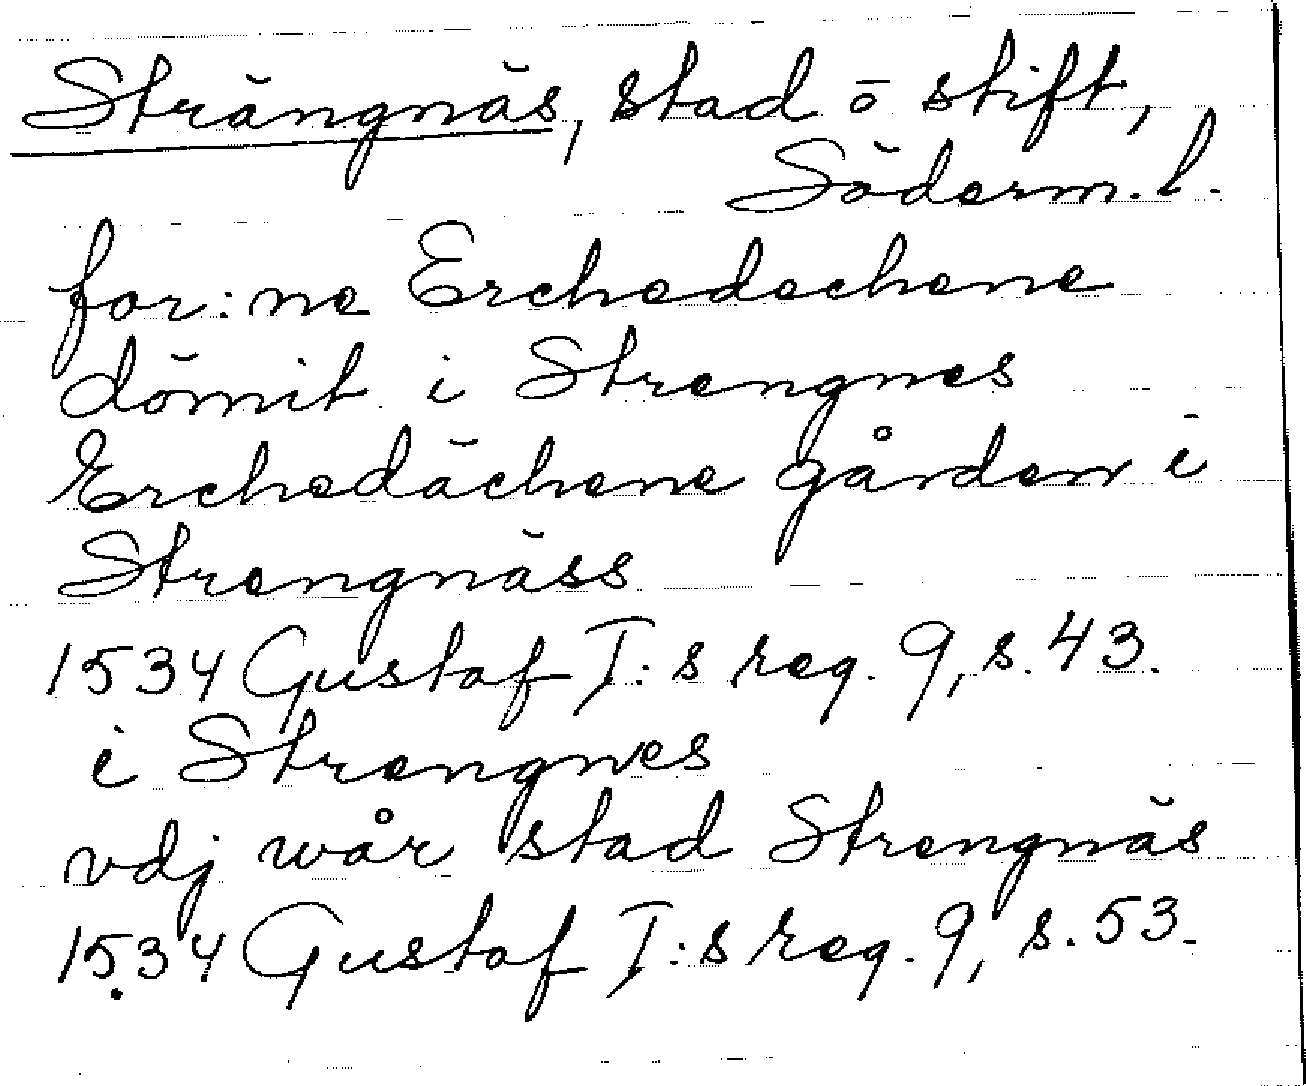 Strängnäs, stad o stift,
Söderm. l.
for:ne Erchedechene
dömit i Strengnes
Erchedächene gården i
Strengnäss
1534 Gustaf I:s reg. 9, s. 43.
i Strengnes
vdj wår stad Strengnäs
1534 Gustaf I:s reg. 9, s. 53.